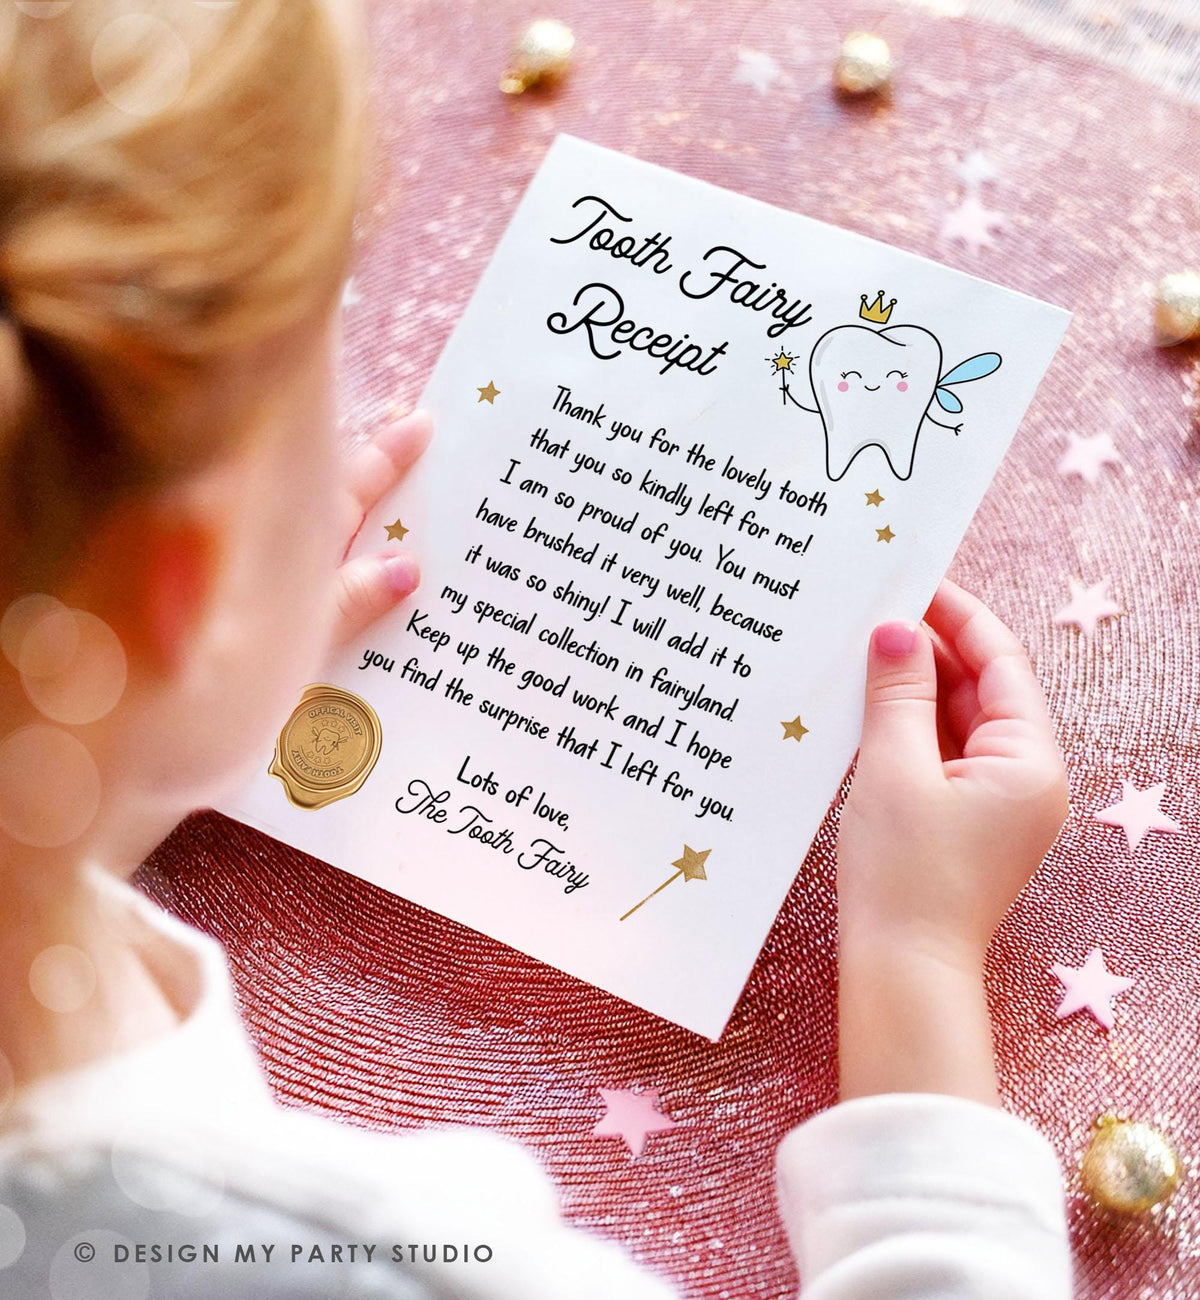 Tooth Fairy
Receipt
Thank you for the lovely tooth
that you so kindly left for me!
I am so proud of you. You must
have brushed it very well, because
it was so shiny! I will add it to
my special collection in fairyland.
Keep up the good work and I hope
you find the surprise that I left for you.
Lots of love,
The Tooth Fairy
OFFICAL VISIT
TOOTH FAIRY
© DESIGN MY PARTY STUDIO